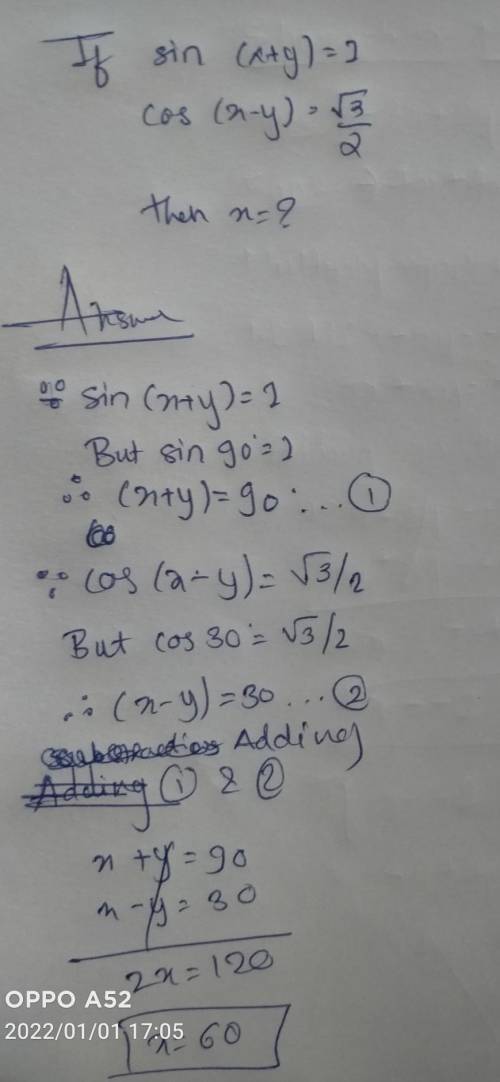 If sin (x+y) = 1
cos (x-y) = √3/2
then x = ?
Answer
∵ sin (x+y) = 1
But sin 90° = 1
∴ (x+y) = 90° ... ①
∵ cos (x-y) = √3/2
But cos 30° = √3/2
∴ (x-y) = 30 ... ②
Adding
Adding ① & ②
x + y = 90
x - y = 30
2x = 120
x = 60
OPPO A52
2022/01/01 17:05